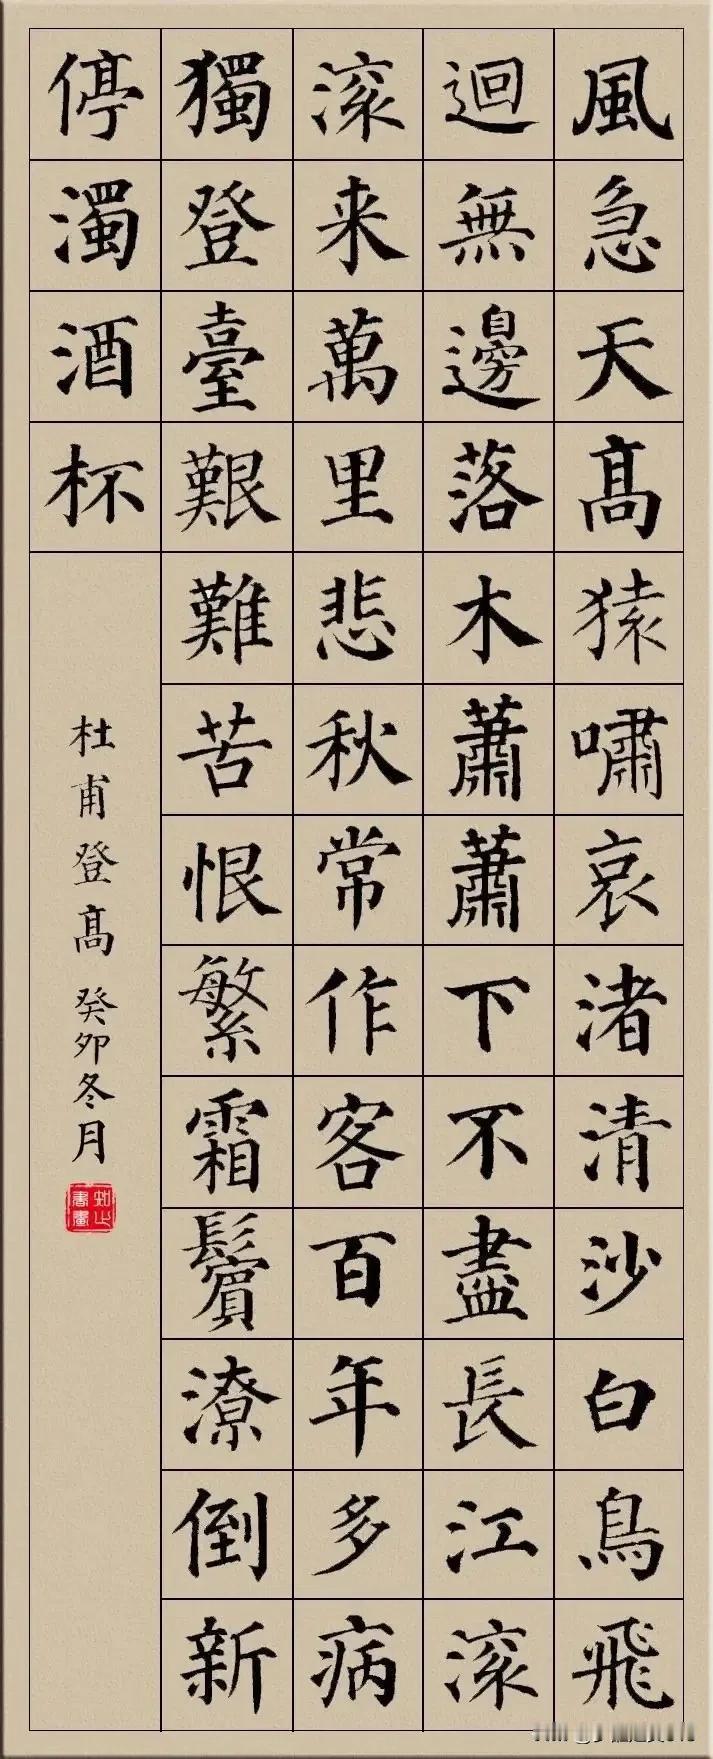 風急天髙猿嘯哀渚清沙白鳥飛
迴無邊落木蕭蕭下不盡長江滚
滚来萬里悲秋常作客百年多病
獨登臺艱難苦恨繁霜鬢潦倒新
停濁酒杯
杜甫登髙 癸卯冬月